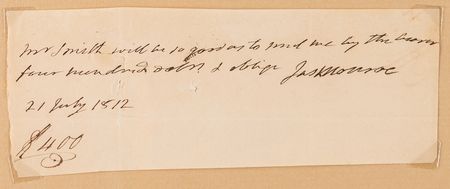 Mr Smith will be so good as to send me by the bearer
four hundred dolrs. & oblige Jas Monroe
21 July 1812
$400